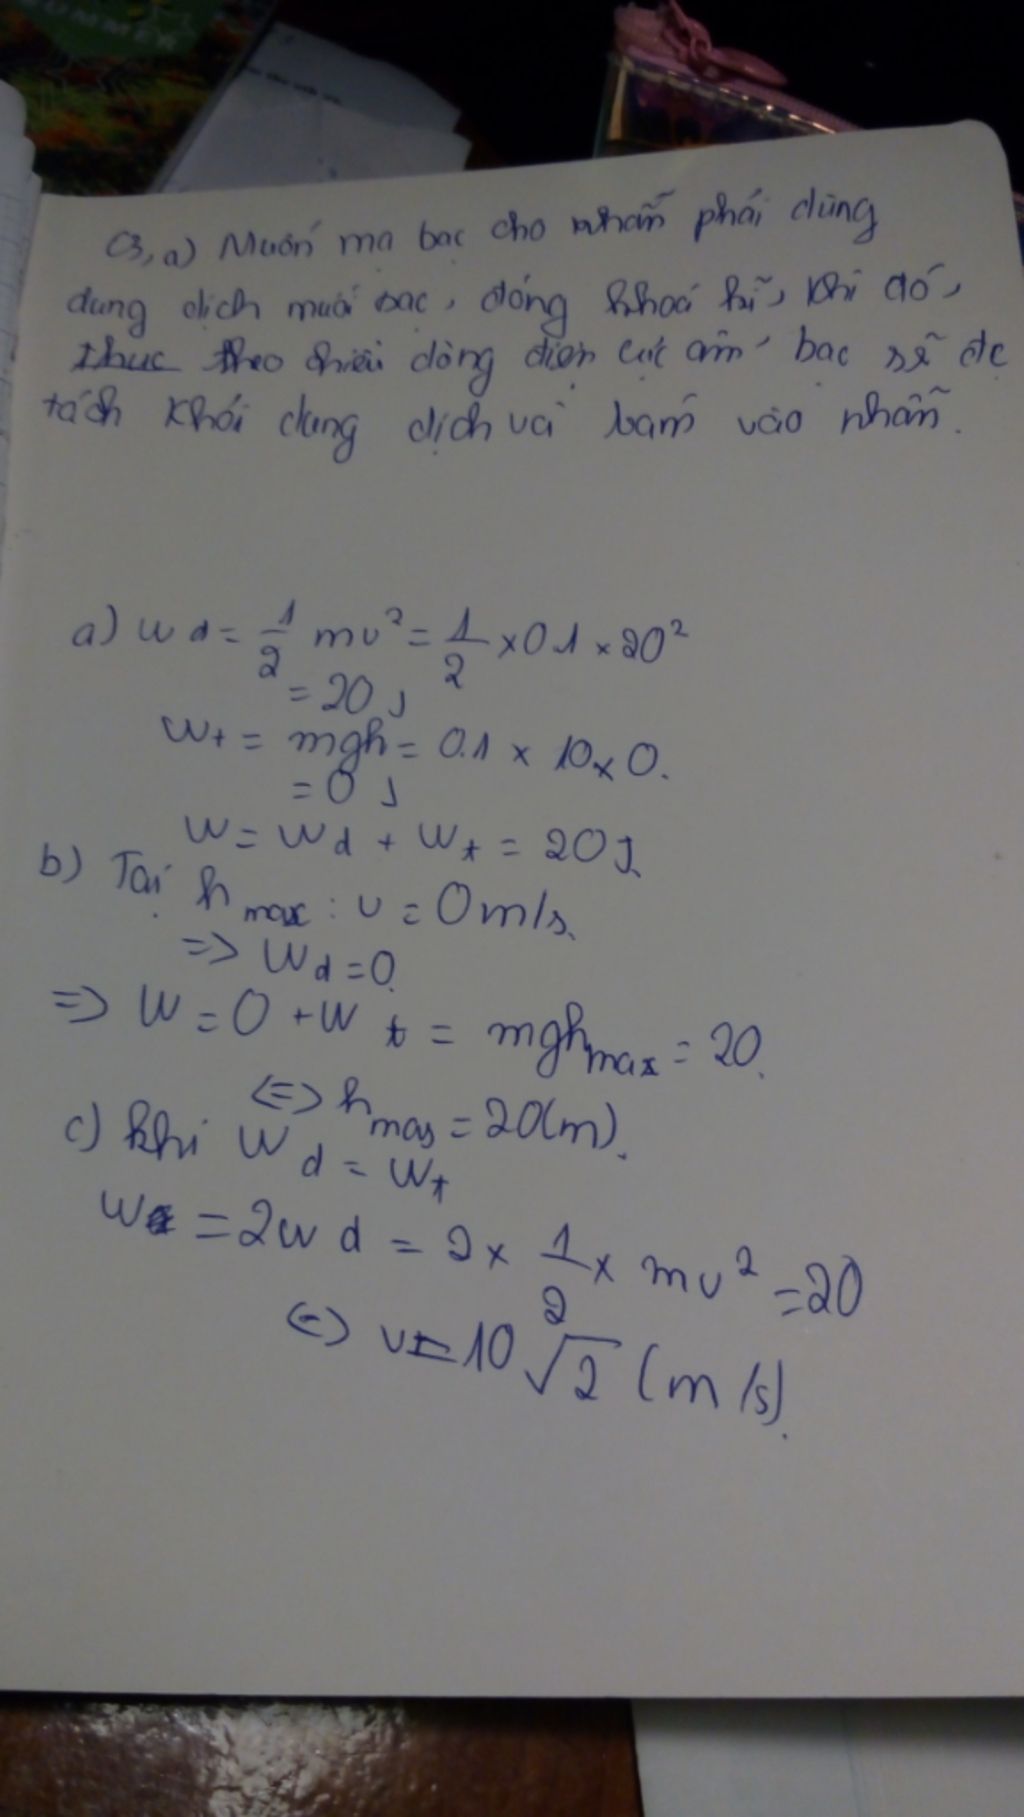 UMMER
C3, a) Muốn mạ bạc cho nhẫn phải dùng
dung dịch muối bạc, đóng khoá k, khi đó,
theo chiều dòng điện cực âm bạc sẽ đc
tách khỏi dung dịch và bám vào nhẫn.
a) Wd = 1/2 mv² = 1/2 × 0.1 × 20²
= 20 J
Wt = mgh = 0.1 × 10 × 0.
= 0 J
W = Wd + Wt = 20 J.
b) Tại hmax : v = 0 m/s.
=> Wd = 0
=> W = 0 + Wt = mghmax = 20.
<=> hmax = 20 (m).
c) khi Wd = Wt
W = 2Wd = 2 × 1/2 × mv² = 20
<=> v = 10√2 (m/s).